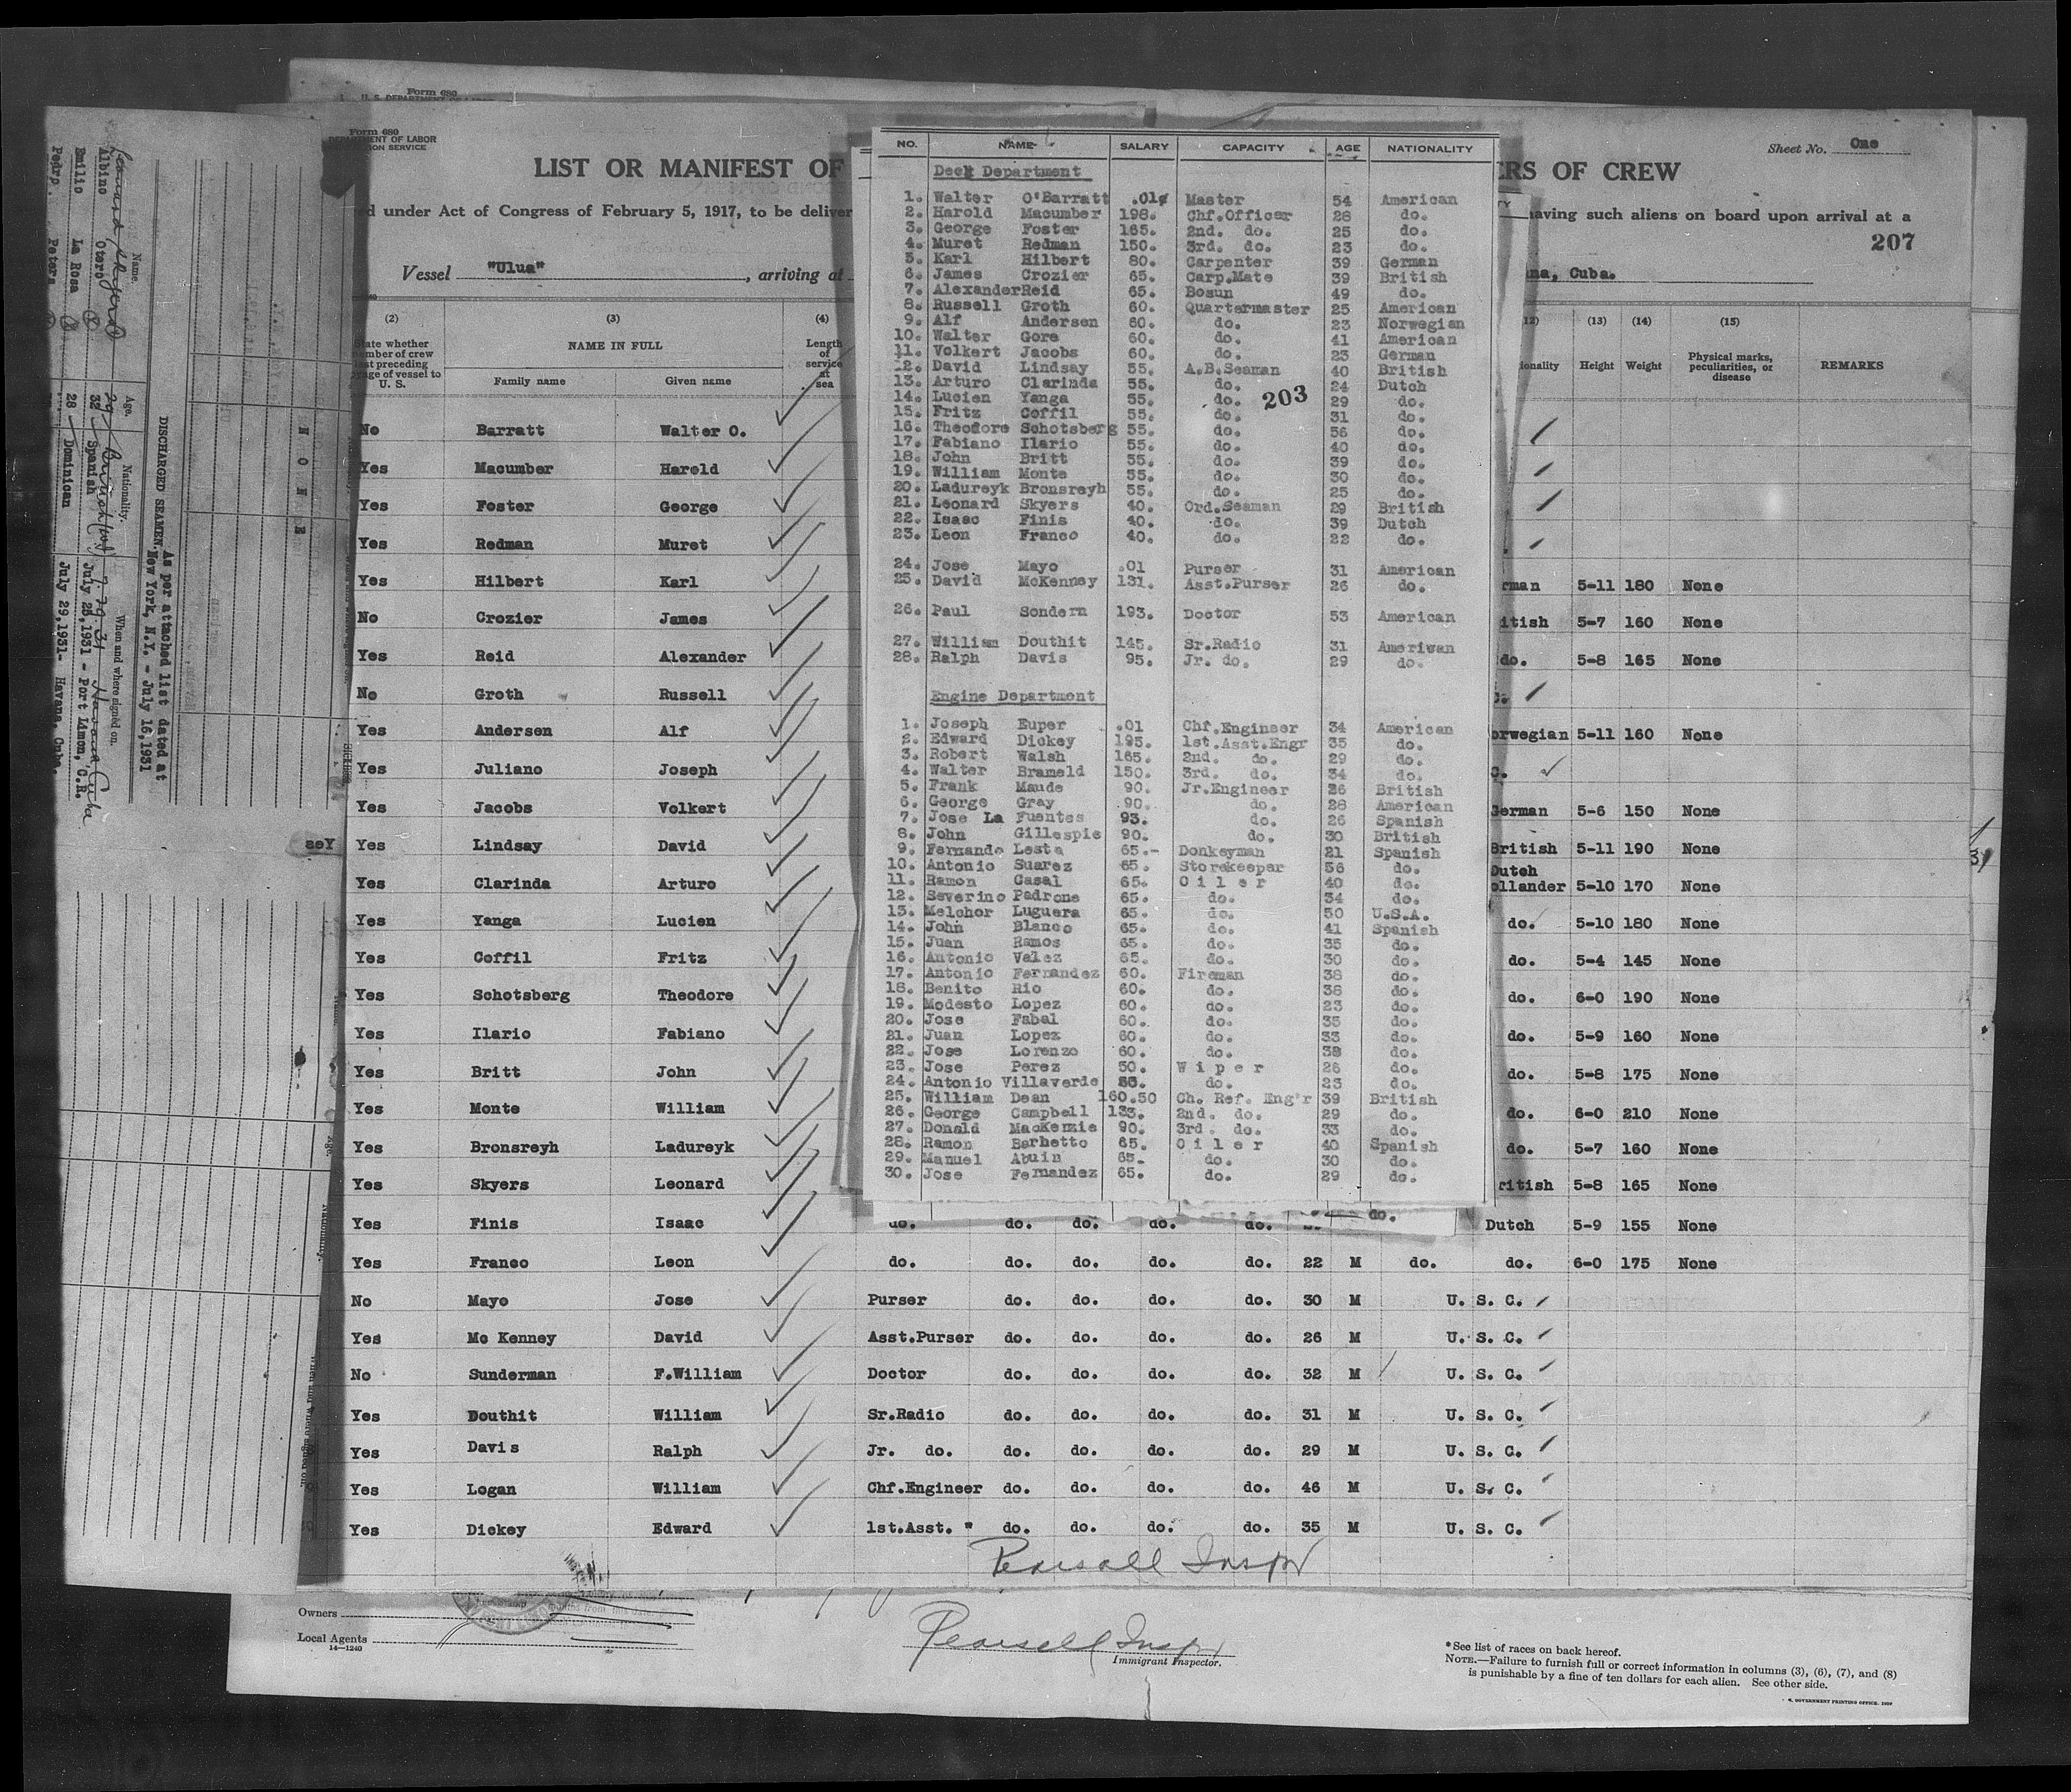 Form 680
Form 680
DEPARTMENT OF LABOR
Sheet No. One
LIST OR MANIFEST OF
ERS OF CREW
under Act of Congress of February 5, 1917, to be deliver
having such aliens on board upon arrival at a
207
Vessel "Ulua", arriving at
na, Cuba.
(2) (3) (4)
State whether member of crew last preceding voyage of vessel to U. S.
NAME IN FULL
Family name Given name
Length of service at sea
(12) (13) (14) (15)
Height Weight Physical marks, peculiarities, or disease REMARKS
No Barratt Walter O.
Yes Macumber Harold
Yes Foster George
Yes Redman Muret
Yes Hilbert Karl rman 5-11 180 None
No Crozier James itish 5-7 160 None
Yes Reid Alexander do. 5-8 165 None
No Groth Russell
Yes Andersen Alf orwegian 5-11 160 None
Yes Juliano Joseph
Yes Jacobs Volkert German 5-6 150 None
Yes Lindsay David British 5-11 190 None
Yes Clarinda Arturo Dutch ollander 5-10 170 None
Yes Yanga Lucien do. 5-10 180 None
Yes Coffil Fritz do. 5-4 145 None
Yes Schotsberg Theodore do. 6-0 190 None
Yes Ilario Fabiano do. 5-9 160 None
Yes Britt John do. 5-8 175 None
Yes Monte William do. 6-0 210 None
Yes Bronsreyh Ladureyk do. 5-7 160 None
Yes Skyers Leonard ritish 5-8 165 None
Yes Finis Isaac do. do. do. do. do. do. Dutch 5-9 155 None
Yes Franco Leon do. do. do. do. do. 22 M do. do. 6-0 175 None
No Mayo Jose Purser do. do. do. do. 30 M U. S. C.
Yes Mc Kenney David Asst.Purser do. do. do. do. 26 M U. S. C.
No Sunderman F.William Doctor do. do. do. do. 32 M U. S. C.
Yes Douthit William Sr.Radio do. do. do. do. 31 M U. S. C.
Yes Davis Ralph Jr. do. do. do. do. do. 29 M U. S. C.
Yes Logan William Chf.Engineer do. do. do. do. 46 M U. S. C.
Yes Dickey Edward 1st.Asst. " do. do. do. do. 35 M U. S. C.
Pearsall Inspr
NO. NAME SALARY CAPACITY AGE NATIONALITY
Deck Department
1. Walter O'Barratt .01¢ Master 54 American
2. Harold Macumber 198. Chf.Officer 28 do.
3. George Foster 165. 2nd. do. 25 do.
4. Muret Redman 150. 3rd. do. 23 do.
5. Karl Hilbert 80. Carpenter 39 German
6. James Crozier 65. Carp.Mate 39 British
7. Alexander Reid 65. Bosun 49 do.
8. Russell Groth 60. Quartermaster 25 American
9. Alf Andersen 60. do. 23 Norwegian
10. Walter Gore 60. do. 41 American
11. Volkert Jacobs 60. do. 23 German
12. David Lindsay 55. A.B.Seaman 40 British
13. Arturo Clarinda 55. do. 24 Dutch
14. Lucien Yanga 55. do. 29 do.
203
15. Fritz Coffil 55. do. 31 do.
16. Theodore Schotsberg 55. do. 56 do.
17. Fabiano Ilario 55. do. 40 do.
18. John Britt 55. do. 39 do.
19. William Monte 55. do. 30 do.
20. Ladureyk Bronsreyh 55. do. 25 do.
21. Leonard Skyers 40. Ord.Seaman 29 British
22. Isaac Finis 40. do. 39 Dutch
23. Leon Franco 40. do. 22 do.
24. Jose Mayo .01 Purser 31 American
25. David McKenney 131. Asst.Purser 26 do.
26. Paul Sondern 193. Doctor 53 American
27. William Douthit 145. Sr.Radio 31 American
28. Ralph Davis 95. Jr. do. 29 do.
Engine Department
1. Joseph Euper .01 Chf.Engineer 34 American
2. Edward Dickey 195. 1st.Asst.Engr 35 do.
3. Robert Walsh 165. 2nd. do. 29 do.
4. Walter Brameld 150. 3rd. do. 34 do.
5. Frank Maude 90. Jr.Engineer 26 British
6. George Gray 90. do. 28 American
7. Jose La Fuentes 93. do. 26 Spanish
8. John Gillespie 90. do. 30 British
9. Fernando Lesta 65.- Donkeyman 21 Spanish
10. Antonio Suarez 65. Storekeeper 56 do.
11. Ramon Casal 65. Oiler 40 do.
12. Severino Padrone 65. do. 34 do.
13. Melchor Luguera 65. do. 50 U.S.A.
14. John Blanco 65. do. 41 Spanish
15. Juan Ramos 65. do. 35 do.
16. Antonio Valez 65. do. 30 do.
17. Antonio Fernandez 60. Fireman 38 do.
18. Benito Rio 60. do. 38 do.
19. Modesto Lopez 60. do. 23 do.
20. Jose Fabal 60. do. 35 do.
21. Juan Lopez 60. do. 33 do.
22. Jose Lorenzo 60. do. 38 do.
23. Jose Perez 50. Wiper 26 do.
24. Antonio Villaverde 50. do. 23 do.
25. William Dean 160.50 Ch. Ref. Eng'r 39 British
26. George Campbell 133. 2nd. do. 29 do.
27. Donald MacKenzie 90. 3rd. do. 33 do.
28. Ramon Barhetto 65. Oiler 40 Spanish
29. Manuel Abuin 65- do. 30 do.
30. Jose Fernandez 65. do. 29 do.
As per attached list dated at
DISCHARGED SEAMEN: New York, N.Y. - July 16,1931
Name. Age. Nationality. When and where signed on.
Leonard Skyers 29 British 7-29-31 Havana Cuba
Albino Otero 32 Spanish July 25,1931 - Port Limon, C.R.
Emilio La Rosa 28 Dominican July 29,1931- Havana, Cuba.
Pedro. Peters
NONE
Yes
Owners
Local Agents
14—1240
Pearsall Inspr
Immigrant Inspector.
*See list of races on back hereof.
NOTE.—Failure to furnish full or correct information in columns (3), (6), (7), and (8)
is punishable by a fine of ten dollars for each alien. See other side.